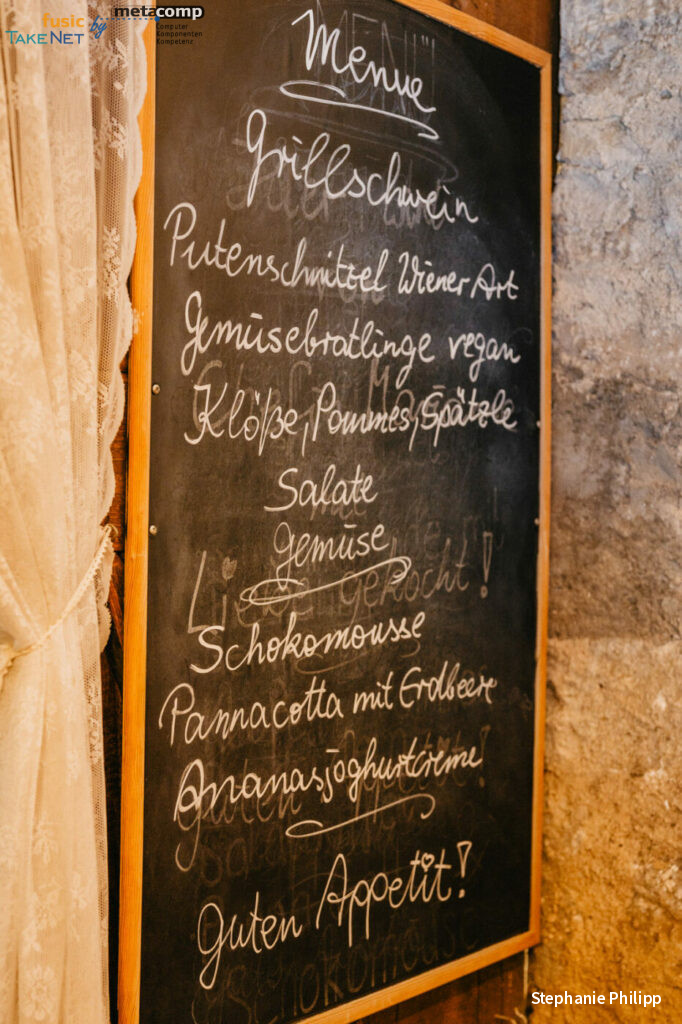 fusic by metacomp
TAKENET
Computer
Komponenten
Kompetenz
Menue
Grillschwein
Putenschnittzel Wiener Art
Gemüsebratlinge vegan
Klöße, Pommes, Spätzle
Salate
Gemüse
Liebe gekocht!
Schokomousse
Pannacotta mit Erdbeere
Ananasjoghurtcreme
Guten Appetit!
Schokomouse
Stephanie Philipp